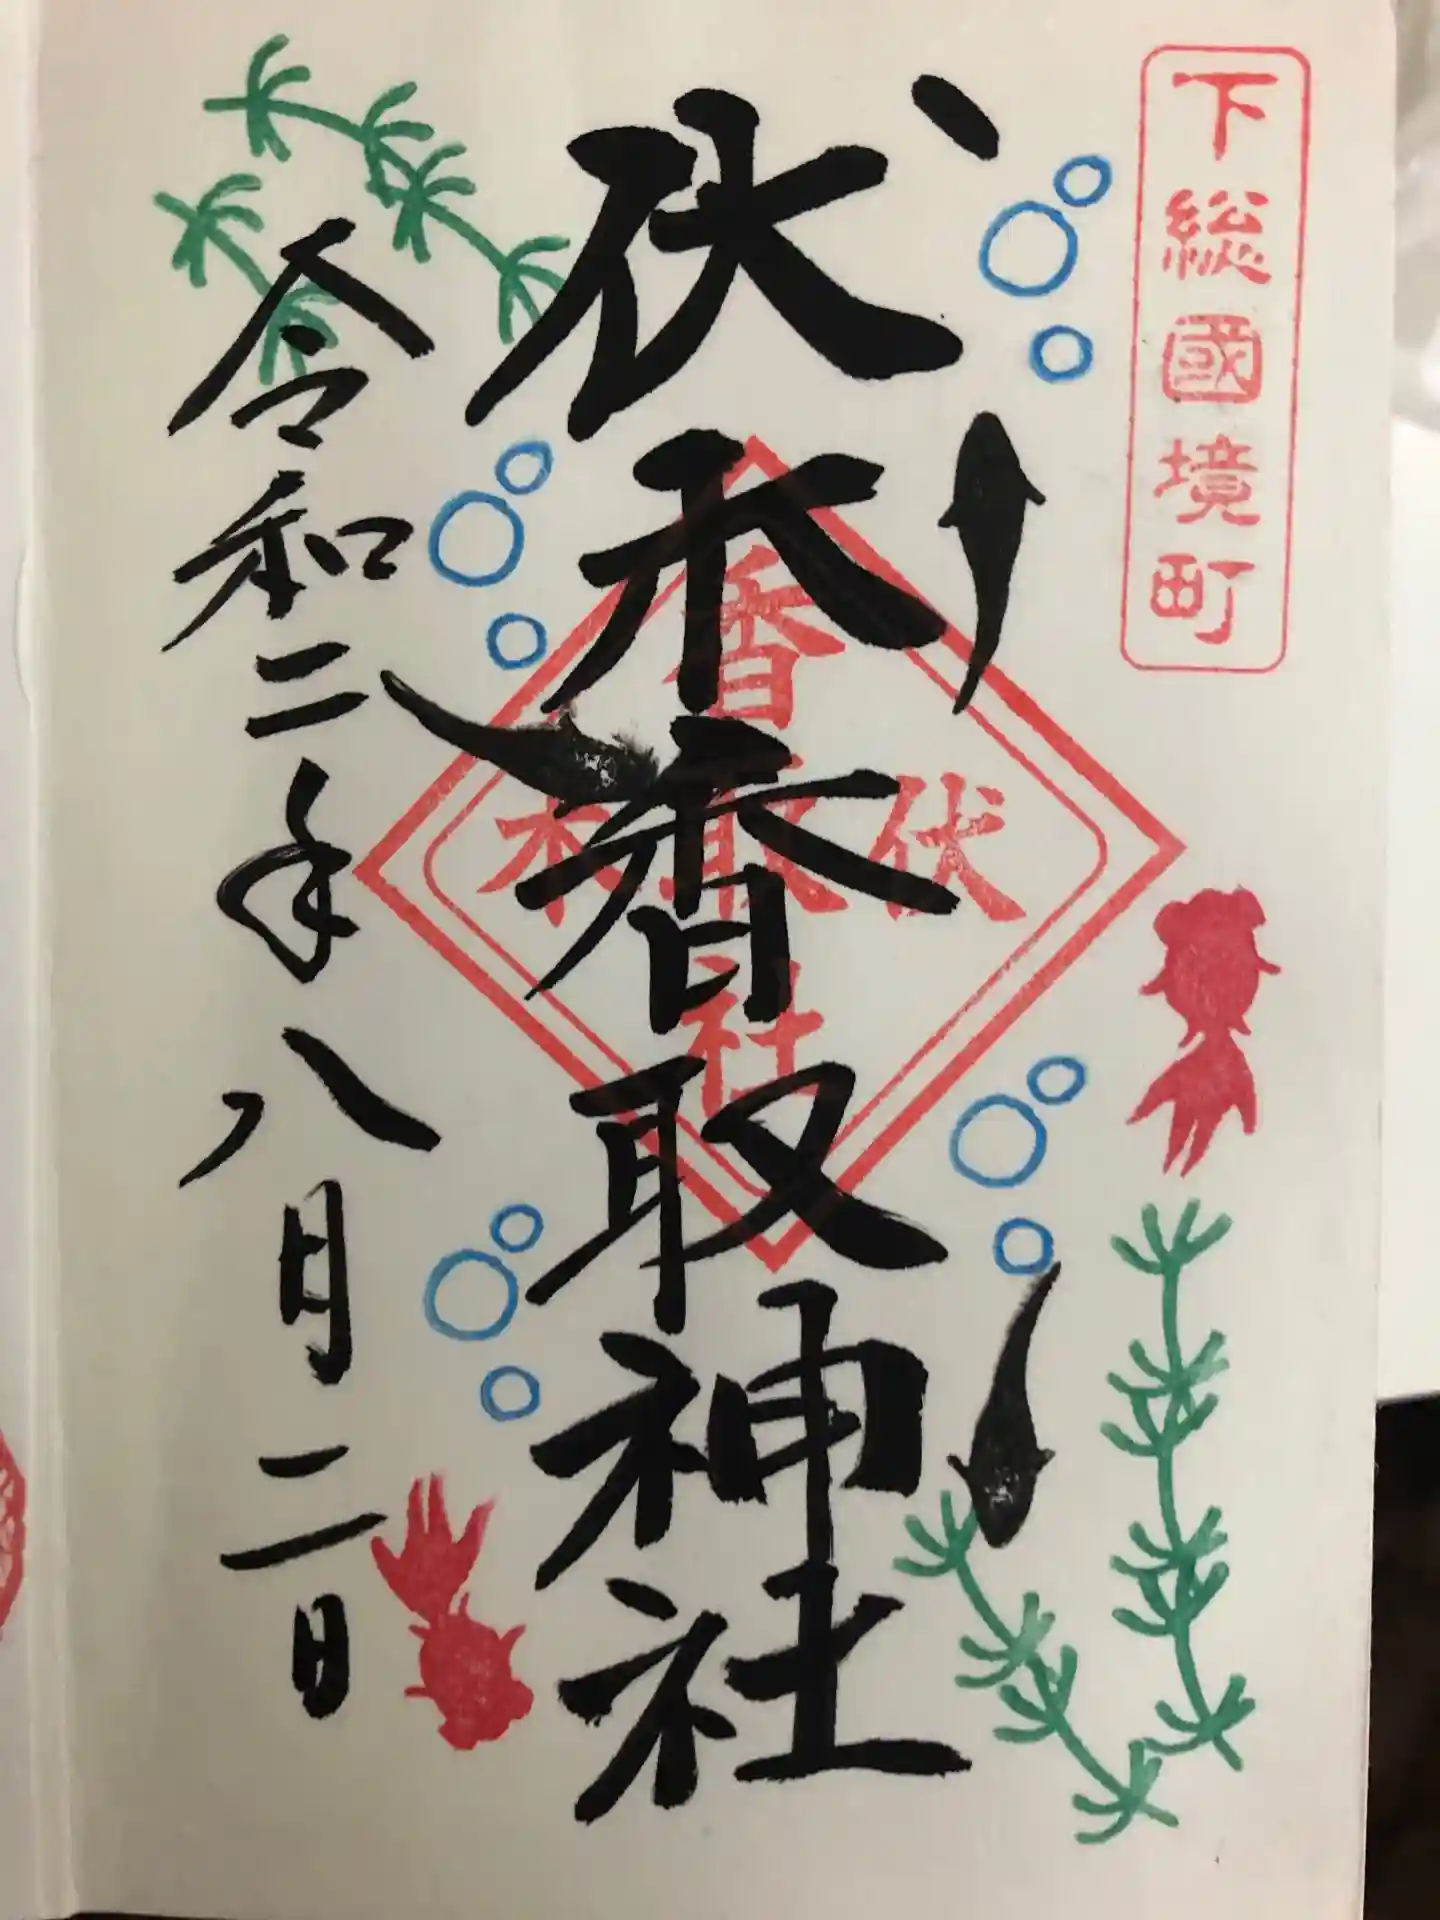 下総國境町
伏木香取神社
伏木香取社
令和二年八月二日